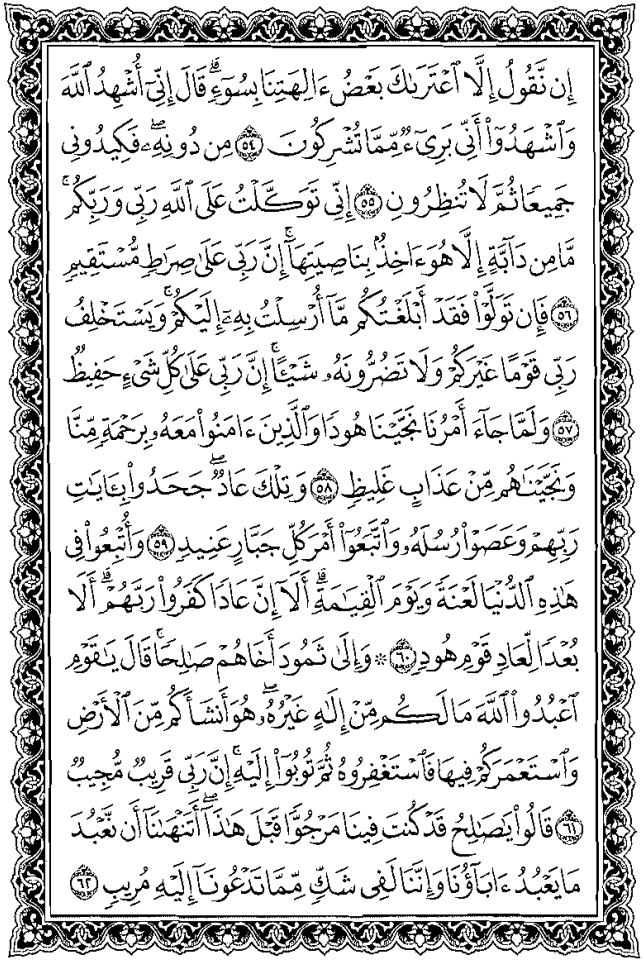 إِن نَّقُولُ إِلَّا ٱعْتَرَىٰكَ بَعْضُ ءَالِهَتِنَا بِسُوٓءٍۗ قَالَ إِنِّىٓ أُشْهِدُ ٱللَّهَ
وَٱشْهَدُوٓا۟ أَنِّى بَرِىٓءٌ مِّمَّا تُشْرِكُونَ ٥٤ مِن دُونِهِۦۖ فَكِيدُونِى
جَمِيعًا ثُمَّ لَا تُنظِرُونِ ٥٥ إِنِّى تَوَكَّلْتُ عَلَى ٱللَّهِ رَبِّى وَرَبِّكُمۚ
مَّا مِن دَآبَّةٍ إِلَّا هُوَ ءَاخِذٌۢ بِنَاصِيَتِهَآۚ إِنَّ رَبِّى عَلَىٰ صِرَٰطٍ مُّسْتَقِيمٍ
٥٦ فَإِن تَوَلَّوْا۟ فَقَدْ أَبْلَغْتُكُم مَّآ أُرْسِلْتُ بِهِۦٓ إِلَيْكُمْۚ وَيَسْتَخْلِفُ
رَبِّى قَوْمًا غَيْرَكُمْ وَلَا تَضُرُّونَهُۥ شَيْـًٔاۚ إِنَّ رَبِّى عَلَىٰ كُلِّ شَىْءٍ حَفِيظٌ
٥٧ وَلَمَّا جَآءَ أَمْرُنَا نَجَّيْنَا هُودًا وَٱلَّذِينَ ءَامَنُوا۟ مَعَهُۥ بِرَحْمَةٍ مِّنَّا
وَنَجَّيْنَٰهُم مِّنْ عَذَابٍ غَلِيظٍ ٥٨ وَتِلْكَ عَادٌۖ جَحَدُوا۟ بِـَٔايَٰتِ
رَبِّهِمْ وَعَصَوْا۟ رُسُلَهُۥ وَٱتَّبَعُوٓا۟ أَمْرَ كُلِّ جَبَّارٍ عَنِيدٍ ٥٩ وَأُتْبِعُوا۟ فِى
هَٰذِهِ ٱلدُّنْيَا لَعْنَةً وَيَوْمَ ٱلْقِيَٰمَةِۗ أَلَآ إِنَّ عَادًا كَفَرُوا۟ رَبَّهُمْۗ أَلَا
بُعْدًا لِّعَادٍ قَوْمِ هُودٍ ٦٠ ۞ وَإِلَىٰ ثَمُودَ أَخَاهُمْ صَٰلِحًاۚ قَالَ يَٰقَوْمِ
ٱعْبُدُوا۟ ٱللَّهَ مَا لَكُم مِّنْ إِلَٰهٍ غَيْرُهُۥۖ هُوَ أَنشَأَكُم مِّنَ ٱلْأَرْضِ
وَٱسْتَعْمَرَكُمْ فِيهَا فَٱسْتَغْفِرُوهُ ثُمَّ تُوبُوٓا۟ إِلَيْهِۚ إِنَّ رَبِّى قَرِيبٌ مُّجِيبٌ
٦١ قَالُوا۟ يَٰصَٰلِحُ قَدْ كُنتَ فِينَا مَرْجُوًّا قَبْلَ هَٰذَآۖ أَتَنْهَىٰنَآ أَن نَّعْبُدَ
مَا يَعْبُدُ ءَابَآؤُنَا وَإِنَّنَا لَفِى شَكٍّ مِّمَّا تَدْعُونَآ إِلَيْهِ مُرِيبٍ ٦٢